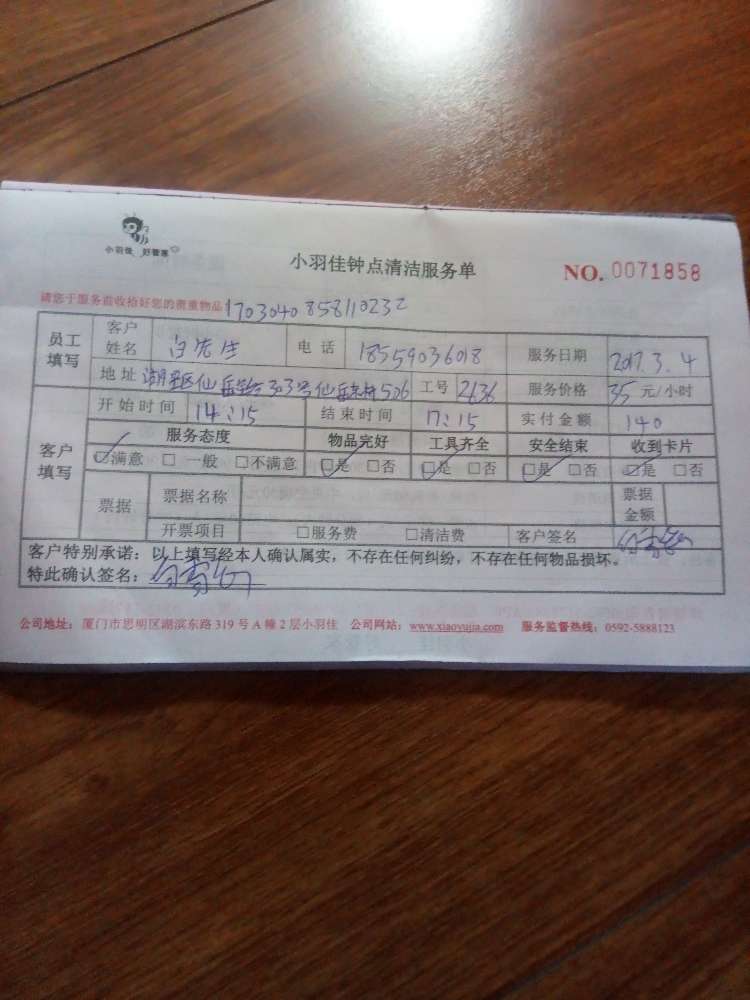 小羽佳 好管家
小羽佳钟点清洁服务单 NO. 0071858
请您于服务前收拾好您的贵重物品 1703040858110232
员工填写 客户姓名 白先生 电话 18559036018 服务日期 2017.3.4
地址 湖里区仙岳路303号仙岳 506 工号 2636 服务价格 35 元/小时
客户填写 开始时间 14:15 结束时间 17:15 实付金额 140
服务态度 物品完好 工具齐全 安全结束 收到卡片
☑满意 □一般 □不满意 ☑是 □否 ☑是 □否 ☑是 □否 ☑是 □否
票据 票据名称 票据金额
开票项目 □服务费 □清洁费 客户签名
客户特别承诺：以上填写经本人确认属实，不存在任何纠纷，不存在任何物品损坏。
特此确认签名：
公司地址：厦门市思明区湖滨东路 319 号 A 幢 2 层小羽佳 公司网站：www.xiaoyujia.com 服务监督热线：0592-5888123